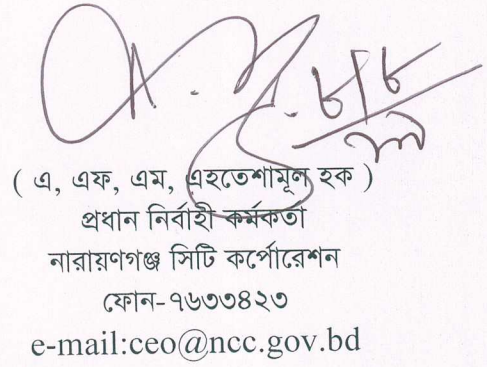 ( এ, এফ, এম, এহতেশামূল হক )
প্রধান নির্বাহী কর্মকর্তা
নারায়ণগঞ্জ সিটি কর্পোরেশন
ফোন-৭৬৩৩৪২৩
e-mail:ceo@ncc.gov.bd